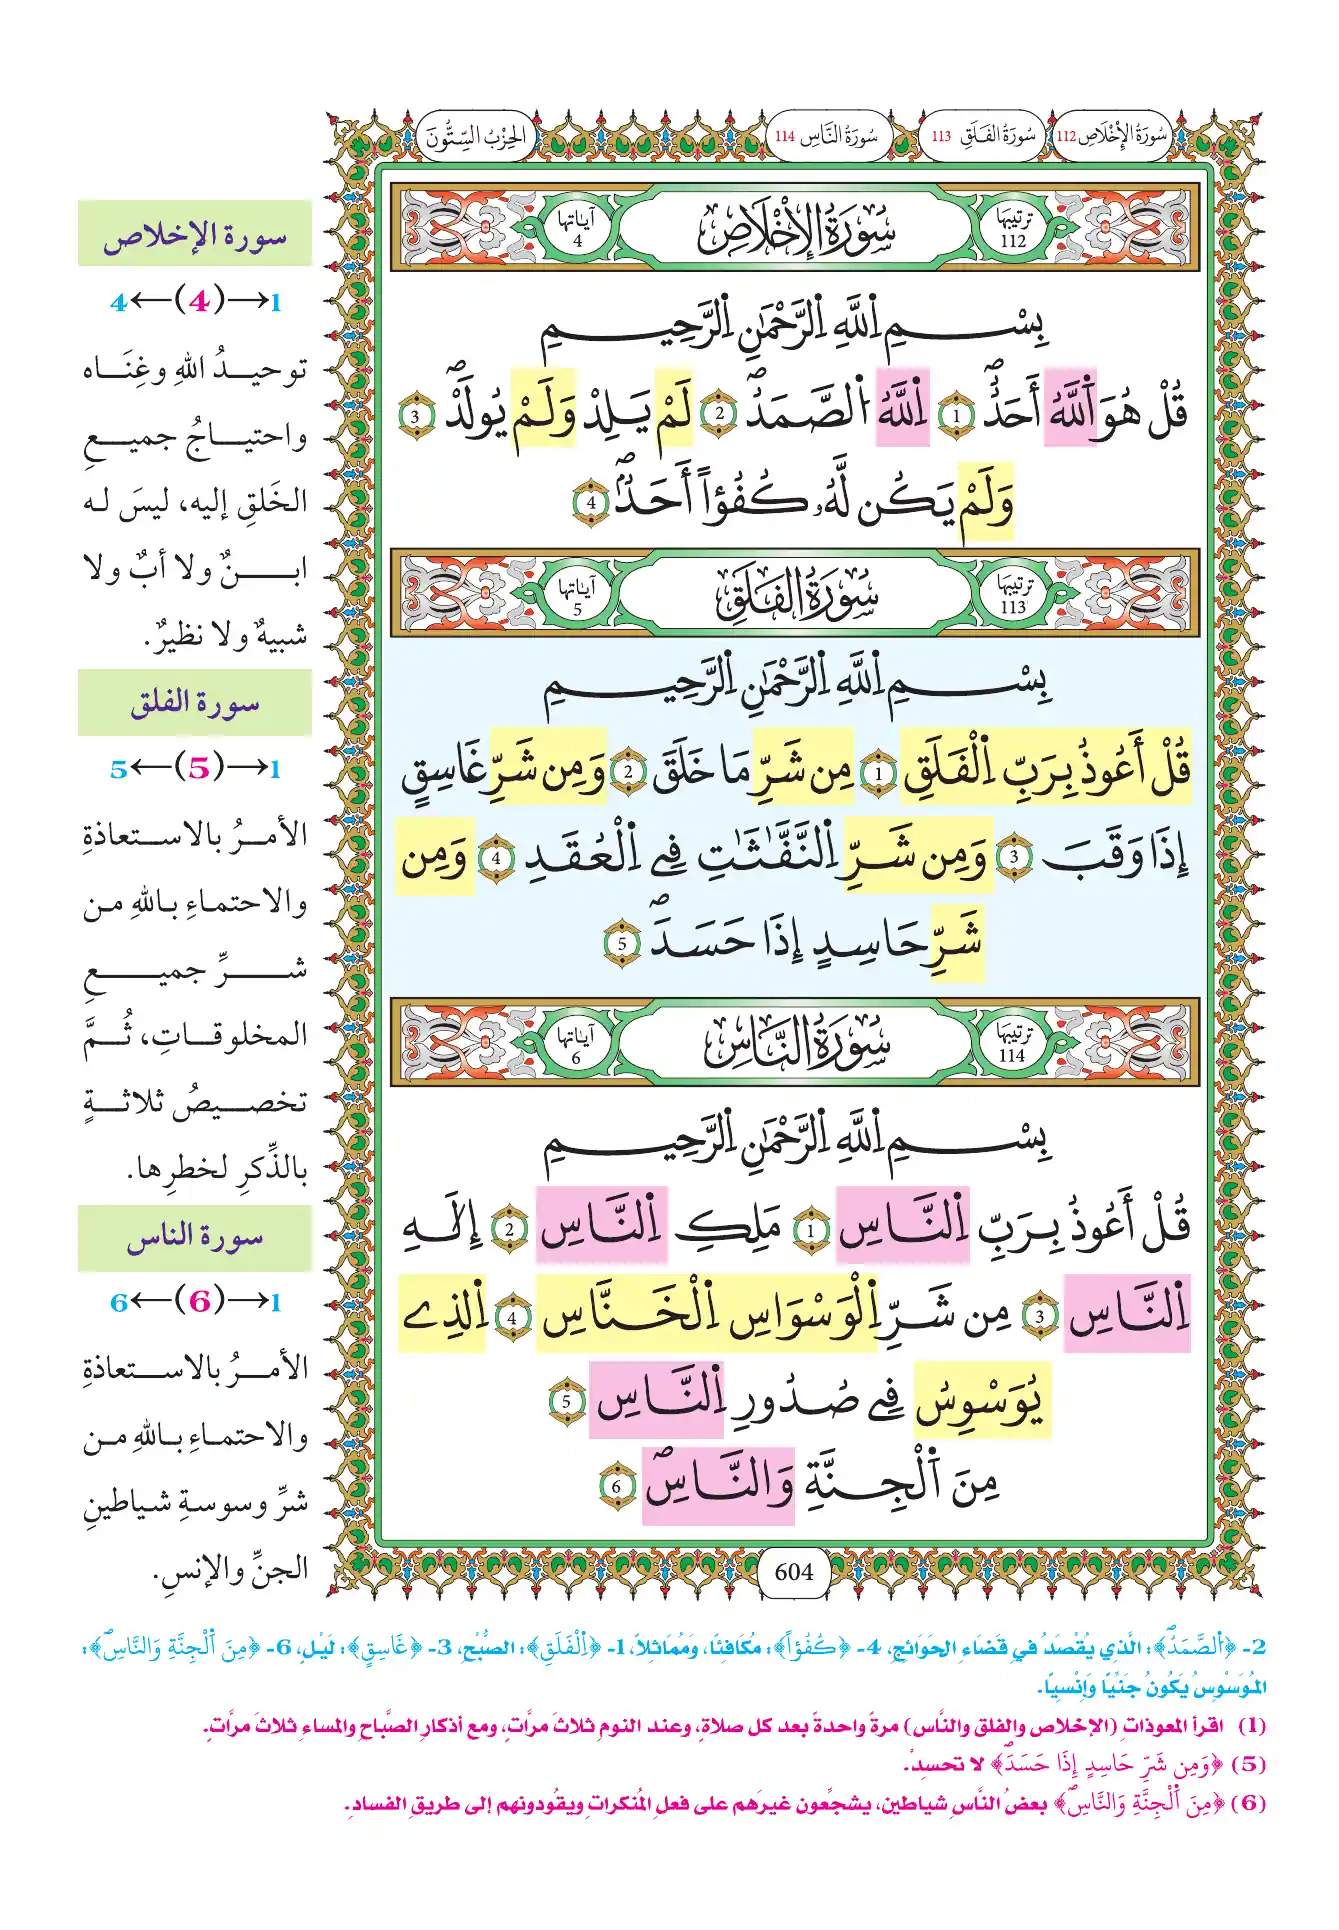 سُورَةُ الإِخْلَاصِ 112
سُورَةُ الفَلَقِ 113
سُورَةُ النَّاسِ 114
الحِزْبُ السِّتُّونَ
ترتيبها
112
سُورَةُ الإِخْلَاصِ
آياتها
4
بِسْمِ اِ۬للَّهِ اِ۬لرَّحْمَٰنِ اِ۬لرَّحِيمِ
قُلْ هُوَ اَ۬للَّهُ أَحَدٌۖ 1 اِ۬للَّهُ اُ۬لصَّمَدُۖ 2 لَمْ يَلِدْ وَلَمْ يُولَدْۖ 3
وَلَمْ يَكُن لَّهُۥ كُفُؤاً أَحَدٌۖ 4
ترتيبها
113
سُورَةُ الفَلَقِ
آياتها
5
بِسْمِ اِ۬للَّهِ اِ۬لرَّحْمَٰنِ اِ۬لرَّحِيمِ
قُلْ أَعُوذُ بِرَبِّ اِ۬لْفَلَقِ 1 مِن شَرِّ مَا خَلَقَ 2 وَمِن شَرِّ غَاسِقٍ
إِذَا وَقَبَ 3 وَمِن شَرِّ اِ۬لنَّفَّٰثَٰتِ فِے اِ۬لْعُقَدِ 4 وَمِن
شَرِّ حَاسِدٍ إِذَا حَسَدَۖ 5
ترتيبها
114
سُورَةُ النَّاسِ
آياتها
6
بِسْمِ اِ۬للَّهِ اِ۬لرَّحْمَٰنِ اِ۬لرَّحِيمِ
قُلْ أَعُوذُ بِرَبِّ اِ۬لنَّاسِ 1 مَلِكِ اِ۬لنَّاسِ 2 إِلَٰهِ
اِ۬لنَّاسِ 3 مِن شَرِّ اِ۬لْوَسْوَاسِ اِ۬لْخَنَّاسِ 4 اِ۬لذِے
يُوَسْوِسُ فِے صُدُورِ اِ۬لنَّاسِ 5
مِنَ اَ۬لْجِنَّةِ وَالنَّاسِۖ 6
604
سورة الإخلاص
1→(4)←4
توحيدُ اللهِ وغِنَاه
واحتياجُ جميعِ
الخَلقِ إليه، ليسَ له
ابنٌ ولا أبٌ ولا
شبيهٌ ولا نظيرٌ.
سورة الفلق
1→(5)←5
الأمرُ بالاستعاذةِ
والاحتماءِ باللهِ من
شرِّ جميعِ
المخلوقاتِ، ثُمَّ
تخصيصُ ثلاثةٍ
بالذِّكرِ لخطرِها.
سورة الناس
1→(6)←6
الأمرُ بالاستعاذةِ
والاحتماءِ باللهِ من
شرِّ وسوسةِ شياطينِ
الجنِّ والإنسِ.
2- ﴿اُ۬لصَّمَدُۖ﴾: الَّذِي يُقْصَدُ فِي قَضَاءِ الحَوَائِجِ، 4- ﴿كُفُؤاً﴾: مُكَافِئًا، وَمُمَاثِلاً، 1- ﴿اِ۬لْفَلَقِ﴾: الصُّبْحِ، 3- ﴿غَاسِقٍ﴾: لَيْلٍ، 6- ﴿مِنَ اَ۬لْجِنَّةِ وَالنَّاسِۖ﴾:
المُوَسْوِسُ يَكُونُ جِنِّيًا وَإِنْسِيًا.
(1) اقرأ المعوذاتِ (الإخلاص والفلق والنَّاس) مرةً واحدةً بعد كل صلاةٍ، وعند النومِ ثلاثَ مرَّاتٍ، ومع أذكارِ الصَّباحِ والمساءِ ثلاثَ مرَّاتٍ.
(5) ﴿وَمِن شَرِّ حَاسِدٍ إِذَا حَسَدَۖ﴾ لا تحسدْ.
(6) ﴿مِنَ اَ۬لْجِنَّةِ وَالنَّاسِۖ﴾ بعضُ النَّاسِ شياطين، يشجِّعون غيرَهم على فعلِ المُنكراتِ ويقُودونهم إلى طريقِ الفسادِ.